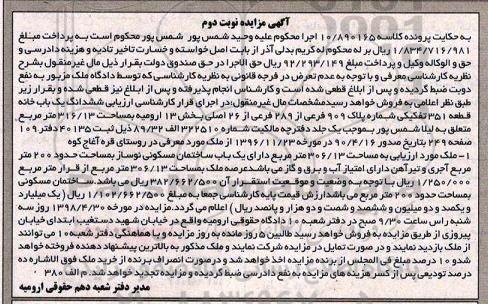 آگهی مزایده نوبت دوم
به حکایت پرونده کلاسه ۱۰/۸۹۰۱۶۵ اجرا محکوم علیه وحید شمس پور شمس پور محکوم است به پرداخت مبلغ
۱/۸۳۴/۷۱۶/۹۸۱ ریال بر له محکوم له کریم بدلی آذر از بابت اصل خواسته و خسارت تاخیر تادیه و هزینه دادرسی و
حق و الوکاله وکیل و پرداخت مبلغ ۹۲/۲۹۳/۱۴۹ ریال حق الاجرا در حق صندوق دولت بقرار ذیل مال غیرمنقول بشرح
نظریه کارشناسی معرفی و با توجه به عدم تعرض در فرجه قانونی به نظریه کارشناسی که توسط دادگاه ملک مزبور به نفع
دویت ضبط گردیده و پس از ابلاغ قطعی شده است و کارشناس انجام پذیرفته و پس از ابلاغ نیز قطعی شده و بقرار زیر
طبق نظر اعلامی به فروش خواهد رسیدمشخصات مال غیرمنقول:در اجرای قرار کارشناسی ارزیابی ششدانگ یک باب خانه
قطعه ۳۵۱ تفکیکی شماره پلاک ۹۰۹ فرعی از ۲۸۹ فرعی از ۲۶ اصلی بخش ۱۳ ارومیه بمساحت ۳۱۶/۱۳ متر مربع
متعلق به لیلا شمس پور بموجب یک جلد دفترچه مالکیت شماره ۳۲۲۵۱۰ الف ۸۹/۳۲ ذیل ثبت ۴۰۱۳۵ دفتر ۱۰۹
صفحه ۲۴۹ بتاریخ صدور ۹۰/۴/۱۶ در مورخه ۱۳۹۶/۱۱/۲۳ از ملک مورد معرفی در روستای قره آغاج کوه
۱- ملک مورد ارزیابی به مساحت ۳۰۶/۱۳ متر مربع دارای یک باب ساختمان مسکونی نوساز بمساحت حدود ۲۰۰ متر
مربع آجری و تیرآهن دارای امتیاز آب و برق و گاز می باشد عرصه ملک بمساحت ۳۰۶/۱۳ متر مربع از قرار متر مربع
۱/۲۵۰/۰۰۰ ریال با توجه به وضعیت و موقعیت استقرار آن ۳۸۲/۶۶۲/۵۰۰ ریال می باشد.ساختمان مسکونی
بمساحت حدود ۲۰۰ متر مربع می باشد ارزش قیمت پایه کارشناسی جمعا به مبلغ ۱/۱۰۲/۶۶۲/۵۰۰ ریال (یک میلیارد
و یکصد و دو میلیون و ششصد و شصت و دو هزار و پانصد ریال) اعلام می گردد.مزایده در مورخه ۱۳۹۸/۴/۳۰ روز سه
شنبه راس ساعت ۹/۳۰ صبح در دفتر شعبه ۱۰ دادگاه حقوقی ارومیه واقع در خیابان شهید دستغیب ابتدای خیابان
پیروزی از طریق مزایده به فروش خواهد رسید طالبین ۵ روز مانده به روز مزایده با هماهنگی دفتر شعبه ۱۰ می توانند
از ملک بازدید نمایند و در صورت تمایل در مزایده شرکت نمایند و ملک مذکور به بالاترین پیشنهاد دهنده فروخته خواهد
شد و ۱۰ درصد مبلغ فی المجلس از برنده مزایده اخذ خواهد شد و در صورت انصراف برنده از خرید ملک فوق الاشاره ده
درصد تودیعی پس از کسر هزینه های مزایده به نفع دادرسی ضبط گردیده و مزایده تجدید خواهد شد. م الف ۳۸۰
مدیر دفتر شعبه دهم حقوقی ارومیه